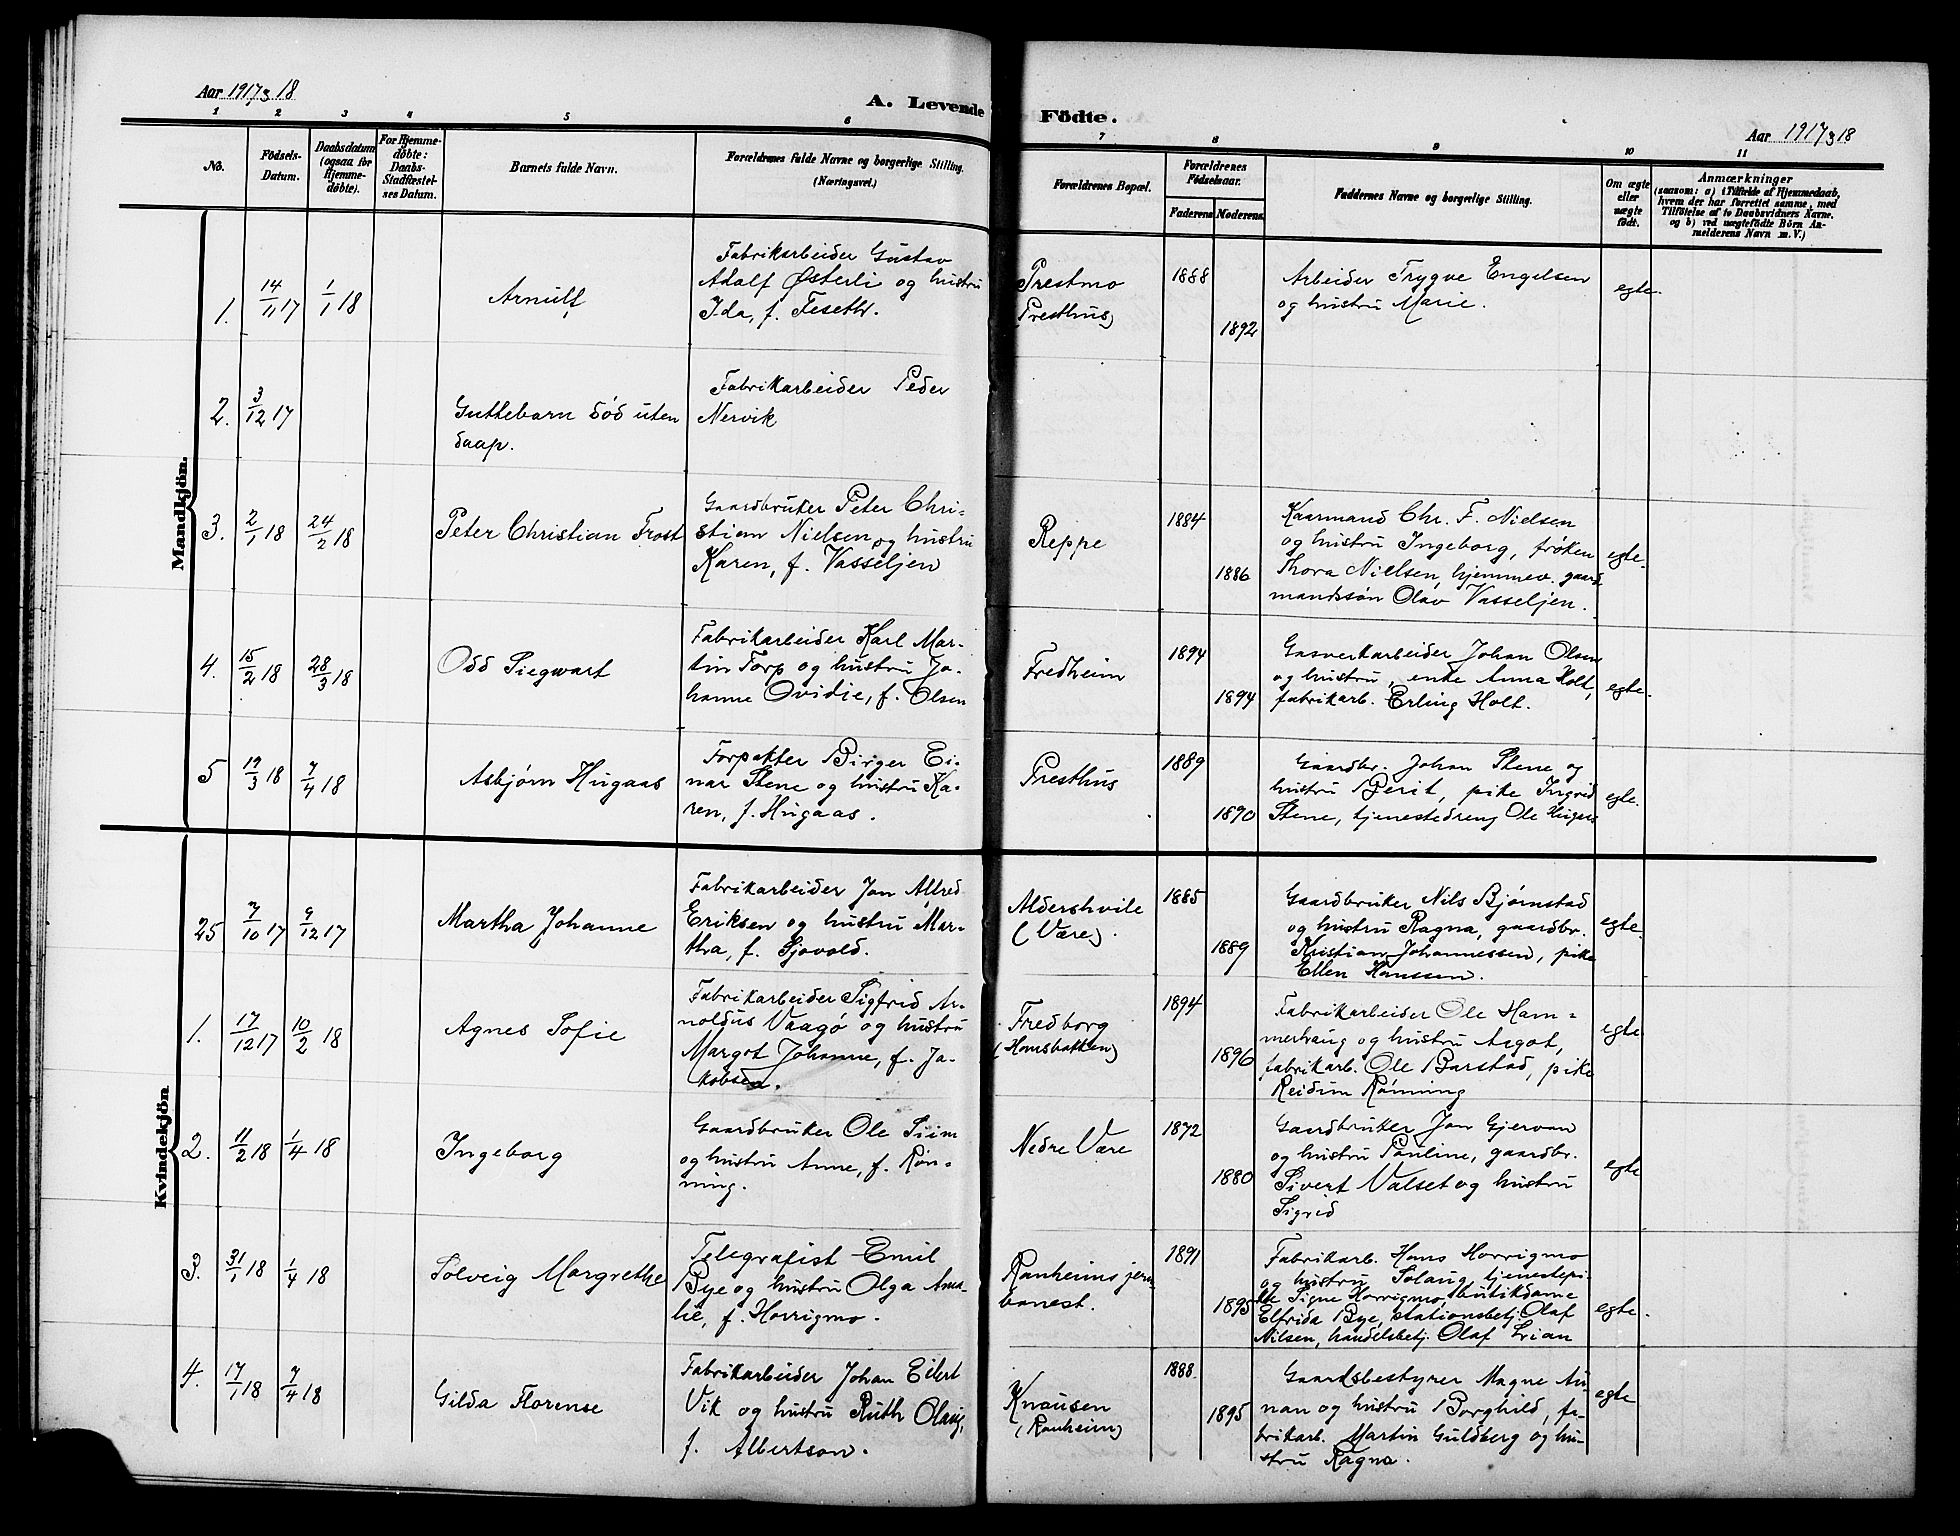 Aar 1917 & 18
A. Levende Födte.
Aar 1917 & 18
1 2 3 4 5 6 7 8 9 10 11
No.
Födsels-
Datum.
Daabsdatum
(ogsaa for
Hjemme-
døbte).
For Hjemme-
døbte:
Daabs-
Stadfæstel-
ses Datum.
Barnets fulde Navn.
Forældrenes fulde Navne og borgerlige Stilling.
(Næringsvei.)
Forældrenes Bopæl.
Forældrenes
Födselsaar.
Faderens Moderens
Faddernes Navne og borgerlige Stilling.
Om ægte
eller
uægte
födt.
Anmærkninger
(saasom: a) i Tilfælde af Hjemmedaab,
hvem der har forrettet samme, med
Tilföielse af to Daabsvidners Navne.
og b) ved uægtefödte Börn An-
melderens Navn m. V.)
Mandkjön.
1.
14/11 17
1/1 18
Arnulf
Fabrikarbeider Gustav
Adolf Østerli og hustru
Ida, f. Teseth.
Prestmo
(Presthus)
1888
1892
Arbeider Trygve Engelsen
og hustru Marie.
egte.
2.
3/12 17
Guttebarn död uten
daap.
Fabrikarbeider Peder
Nervik
3.
2/1 18
24/2 18
Peter Christian Frost
Gaardbruker Peter Chri-
stian Nielsen og hustru
Karen, f. Vasseljen
Reppe
1884
1886
Kaarmand Chr. F. Nielsen
og hustru Ingeborg, frøken
Thora Nielsen, hjemmev. gaard
mandssön Olav Vasseljen.
egte.
4.
15/2 18
28/3 18
Odd Siegwart
Fabrikarbeider Karl Mar-
tin Torp og hustru Jo-
hanne Ovidie, f. Olsen
Fredheim
1894
1894
Gasverkarbeider Johan Olsen
og hustru, enke Anna Holt,
fabrikarb. Erling Holt.
egte.
5
19/3 18
7/4 18
Asbjørn Hugaas
Forpakter Birger Ei-
nar Stene og hustru Ka-
ren, f. Hugaas.
Presthus
1889
1890
Gaardbr. Johan Stene og
hustru Berit, pike Ingrid
Stene, tjenestedreng Ole Hugaas
egte.
Kvindekjön
25
7/10 17
9/12 17
Martha Johanne
Fabrikarbeider Jon Alfred
Eriksen og hustru Mar-
tha, f. Sjovold.
Aldershvile
(Være).
1885
1889
Gaardbruker Nils Bjørnstad
og hustru Ragna, gaardbr.
Kristian Johannessen, pike
Ellen Hanssen.
egte.
1.
17/12 17
10/2 18
Agnes Sofie
Fabrikarbeider Sigfrid Ar-
noldus Vaagö og hustru
Margot Johanne, f. Ja-
kobsen.
Fredborg
(Hansbakken)
1894
1896
Fabrikarbeider Ole Ham-
merhaug og hustru Asgot,
fabrikarb. Ole Barstad, pike
Reidun Rønning
egte
2.
11/2 18
1/4 18
Ingeborg
Gaardbruker Ole Siim
og hustru Anne, f. Røn-
ning.
Nedre Være
1872
1880
Gaardbruker Jon Gjervan
og hustru Pauline, gaardbr.
Sivert Valset og hustru
Sigrid
egte
3.
31/1 18
1/4 18
Solveig Margrethe
Telegrafist Emil
Bye og hustru Olga Ama-
lie, f. Horrigmo.
Ranheims jern
banest.
1891
1895
Fabrikarb. Hans Horrigmo
og hustru Solaug, tjenestepi-
ke Signe Horrigmo, butikdame
Elfrida Bye, stationsbetj. Olaf
Nilsen, handelsbetj. Olaf Lian
egte.
4.
17/1 18
7/4 18
Gilda Florense
Fabrikarbeider Johan Eilert
Vik og hustru Ruth Olaug,
f. Albertson.
Knausen
(Ranheim)
1888
1895
Gaardsbestyrer Magne Au-
nan og hustru Borghild, fa-
brikarb. Martin Guldberg og hu-
stru Ragna.
egte